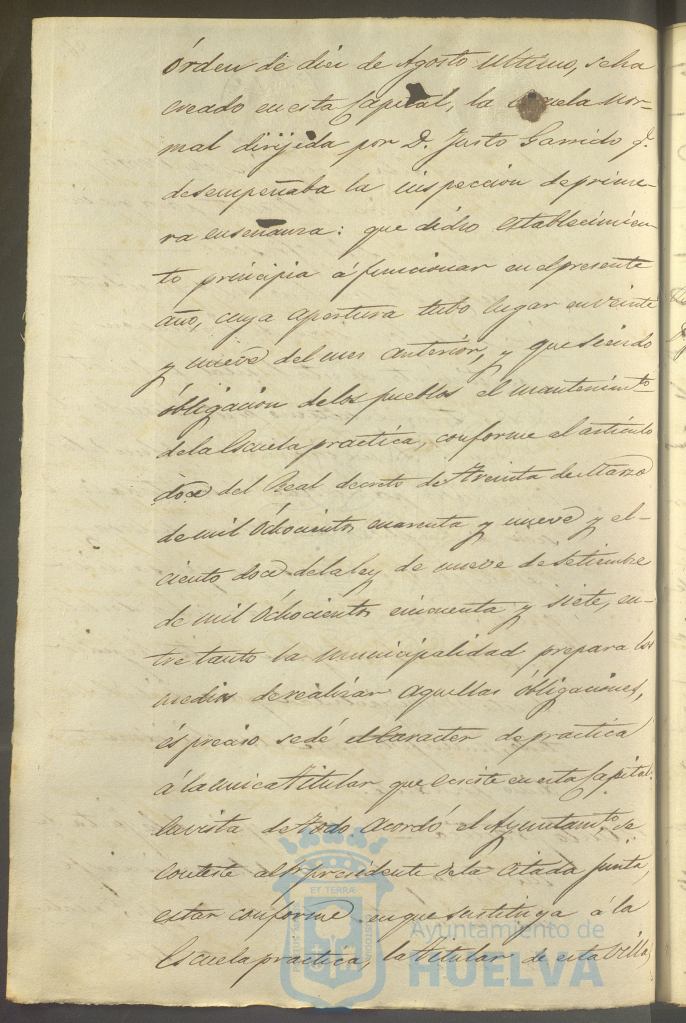 órden de diez de Agosto último, se ha
creado en esta Capital, la escuela Nor-
mal dirijida por D. Justo Garrido q.
desempeñaba la inspeccion de prime-
ra enseñanza: que dicho establecimien-
to principia á funcionar en el presente
año, cuya apertura tubo lugar en veinte
y nueve del mes anterior, y que siendo
obligacion de los pueblos el mantenimto
de la Escuela practica, conforme el artículo
doce del Real decreto de treinta de Marzo
de mil óchocientos cuarenta y nueve y el-
ciento doce de la ley de nueve de Setiembre
de mil óchocientos cincuenta y siete, en-
tre tanto la municipalidad prepara los
medios de realizar aquellas óbligaciones,
és preciso se dé el caracter de practica
á la unica titular que ecsiste en esta Capital.
En vista de todo acordó el Ayuntamto. se
conteste al Sr presidente de la citada junta,
estar conforme en que sustituya á la
Escuela practica, la titular de esta Villa,
Ayuntamiento de
HUELVA